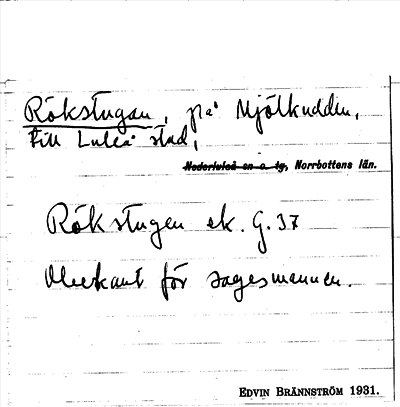 Rökstugan, på Mjölkudden,
till Luleå stad,
Nederluleå sn o. tg, Norrbottens län.
Rökstugen ek. G. 37
Obekant för sagesmannen.
EDVIN BRÄNNSTRÖM 1931.